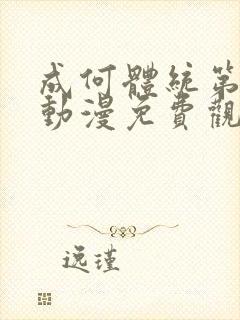 成何體統第
動漫免費觀
逸瑾